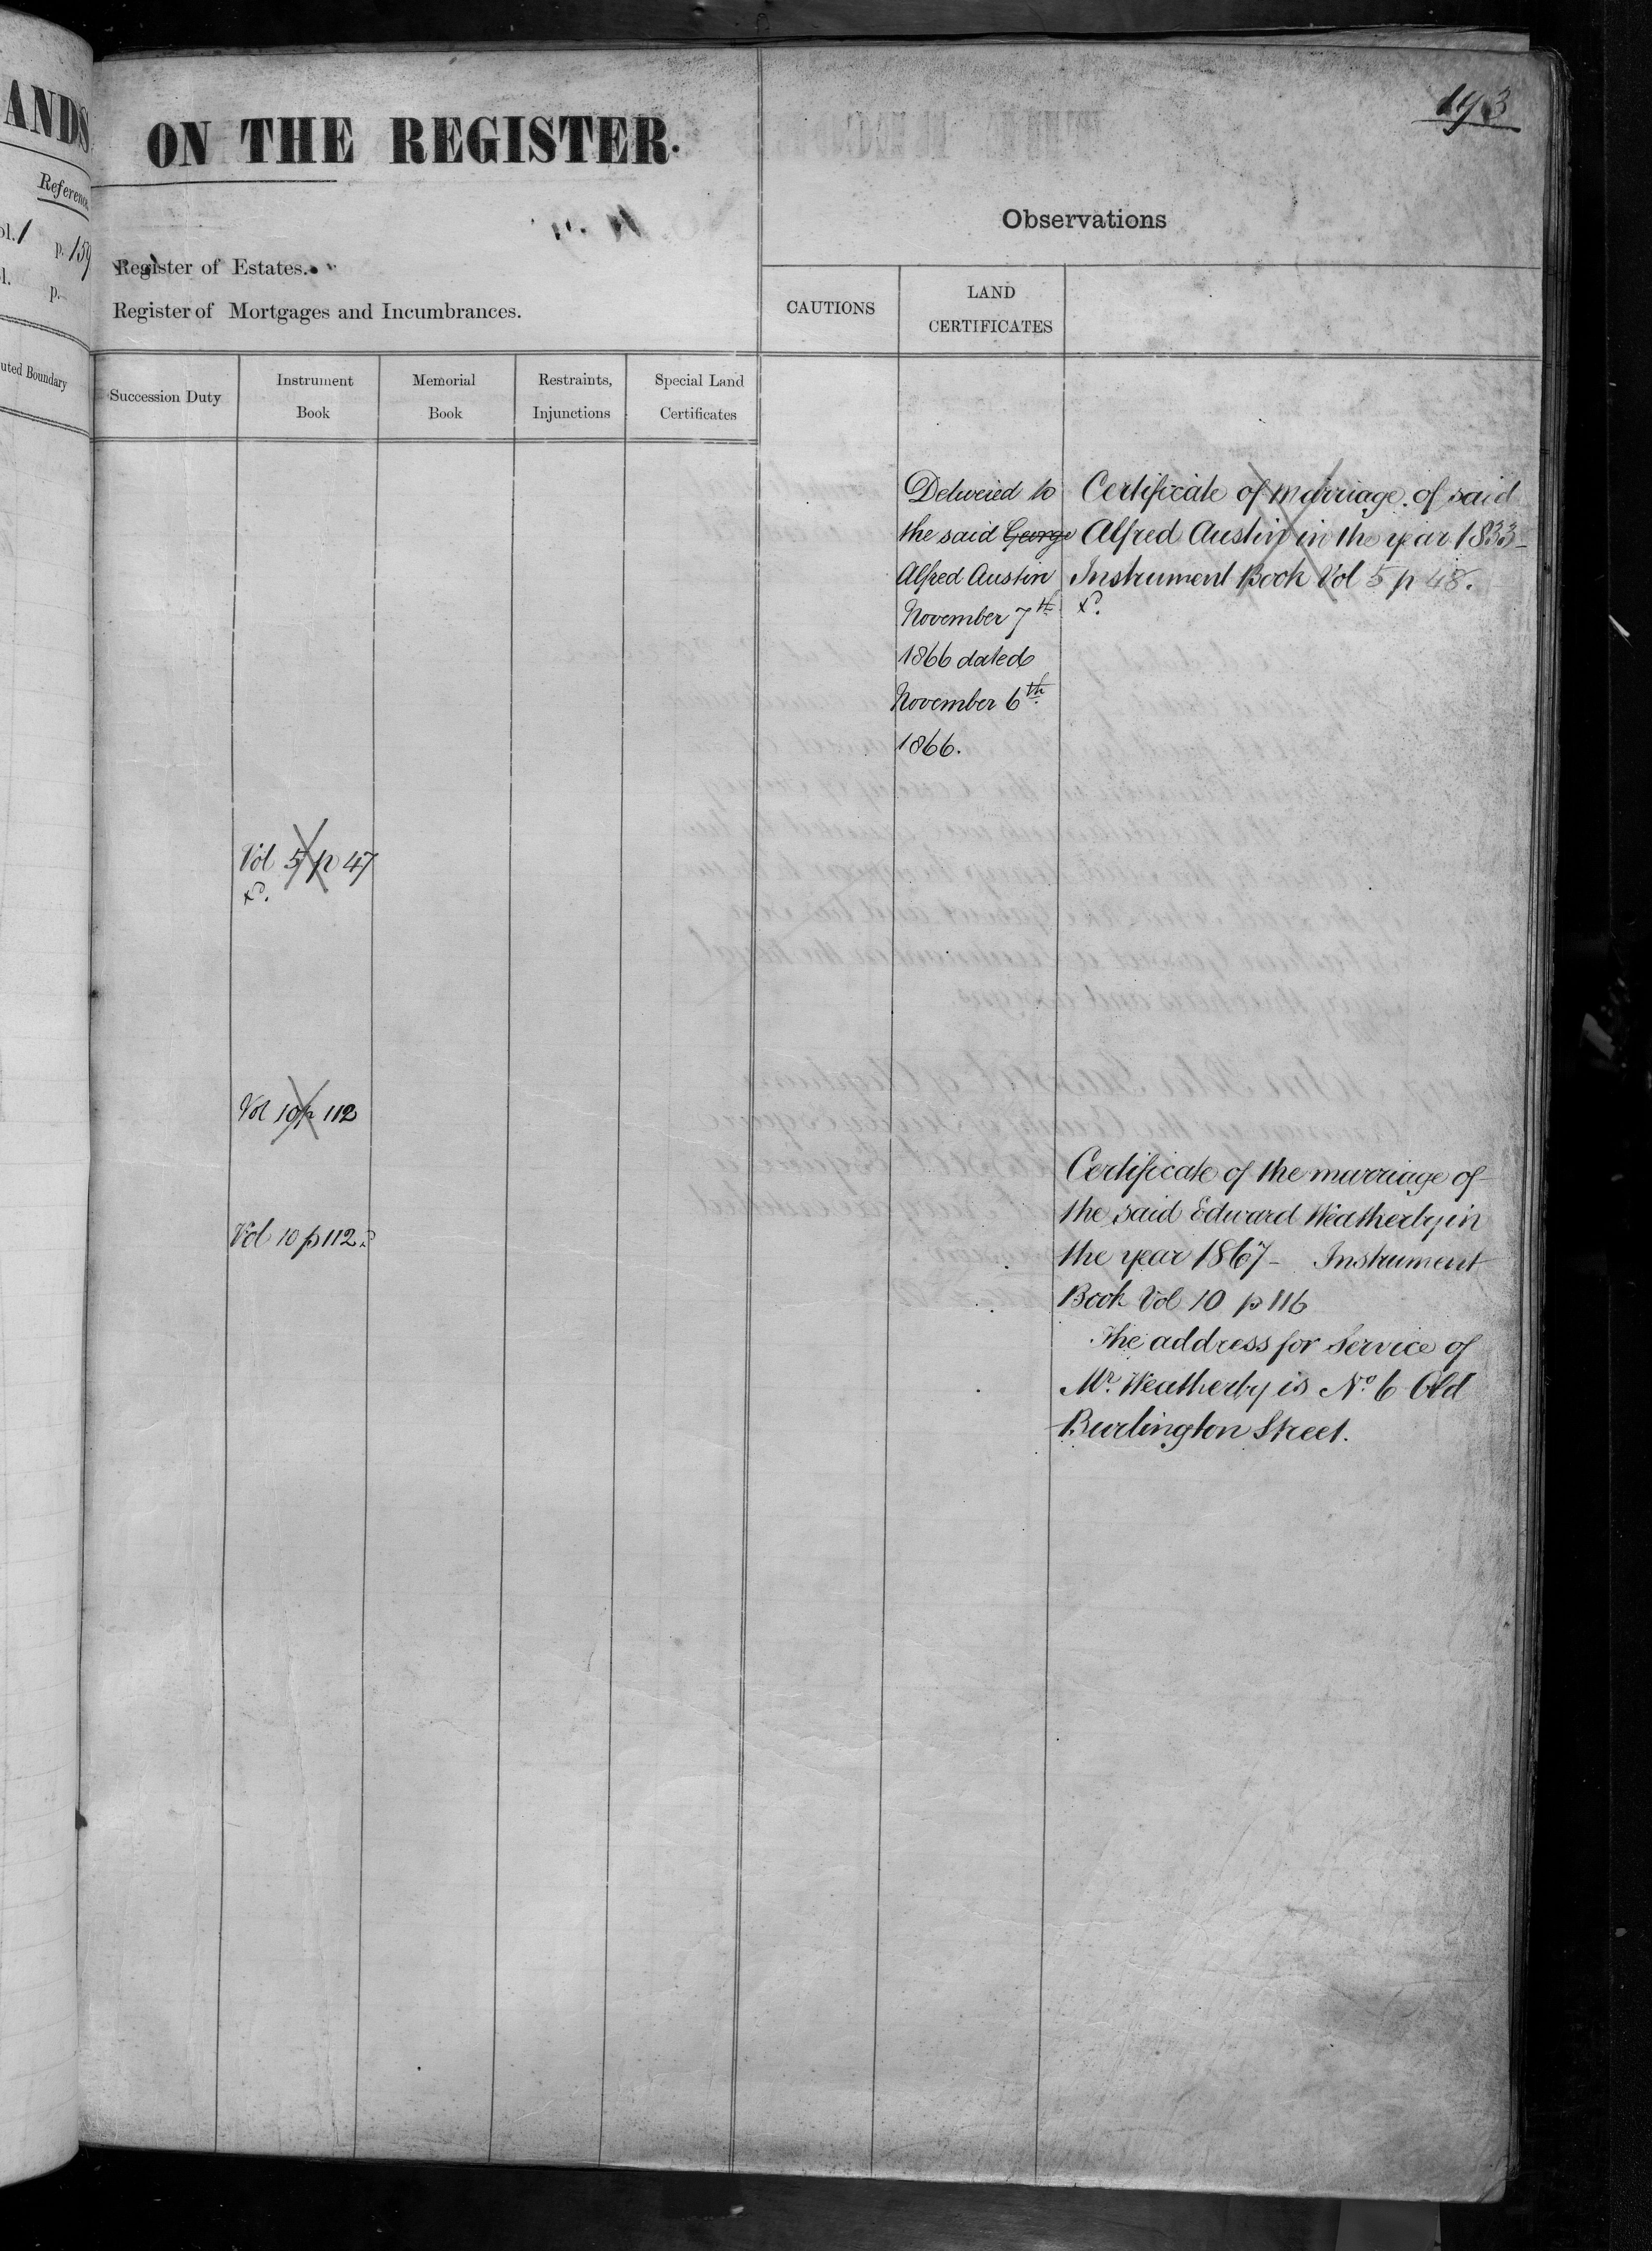 ANDS
Reference
Vol. 1 p. 159
p.
uted Boundary
193
ON THE REGISTER.
Observations
Register of Estates.
Register of Mortgages and Incumbrances.
CAUTIONS
LAND
CERTIFICATES
Succession Duty
Instrument
Book
Memorial
Book
Restraints,
Injunctions
Special Land
Certificates
Delivered to
the said George
Alfred Austin
November 7th
1866 dated
November 6th
1866.
Certificate of marriage of said
Alfred Austin in the year 1833 -
Instrument Book Vol 5 p 48.
Vol 5 p 47
Vol 10 p 112
Vol 10 p 112
Certificate of the marriage of
the said Edward Weatherby in
the year 1867 - Instrument
Book Vol 10 p 116
The address for Service of
Mr. Weatherby is No. 6 Old
Burlington Street.